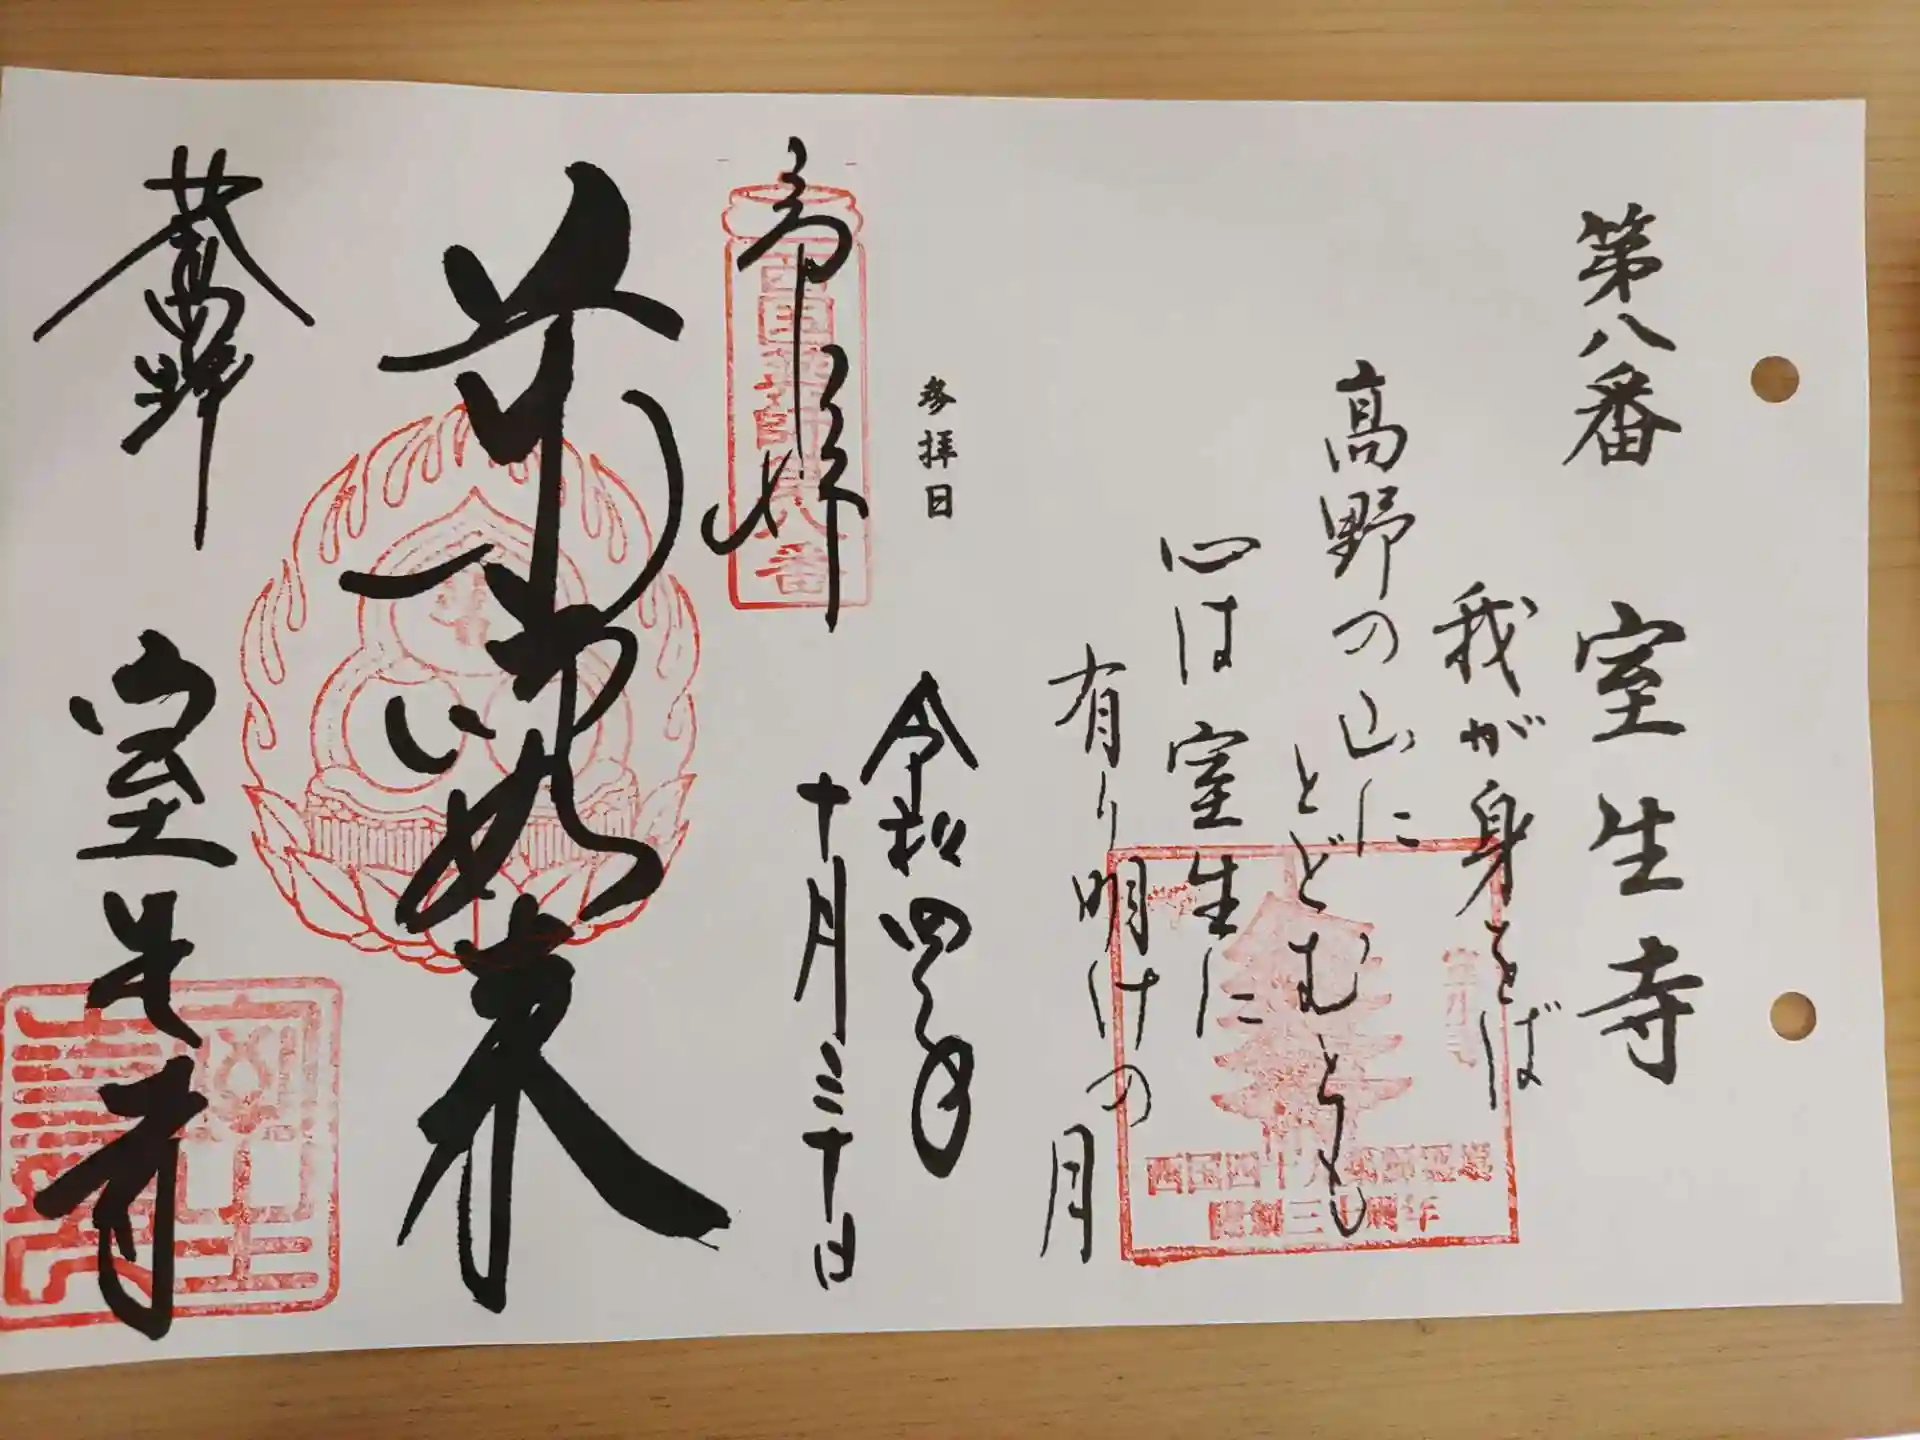 第八番 室生寺
我が身をば
高野の山に
とどむとも
心は室生に
有り明けの月
室生寺
西国四十九薬師霊場
開創三十周年
参拝日
令和四年
十月三十日
西国薬師第八番
如来
室生寺